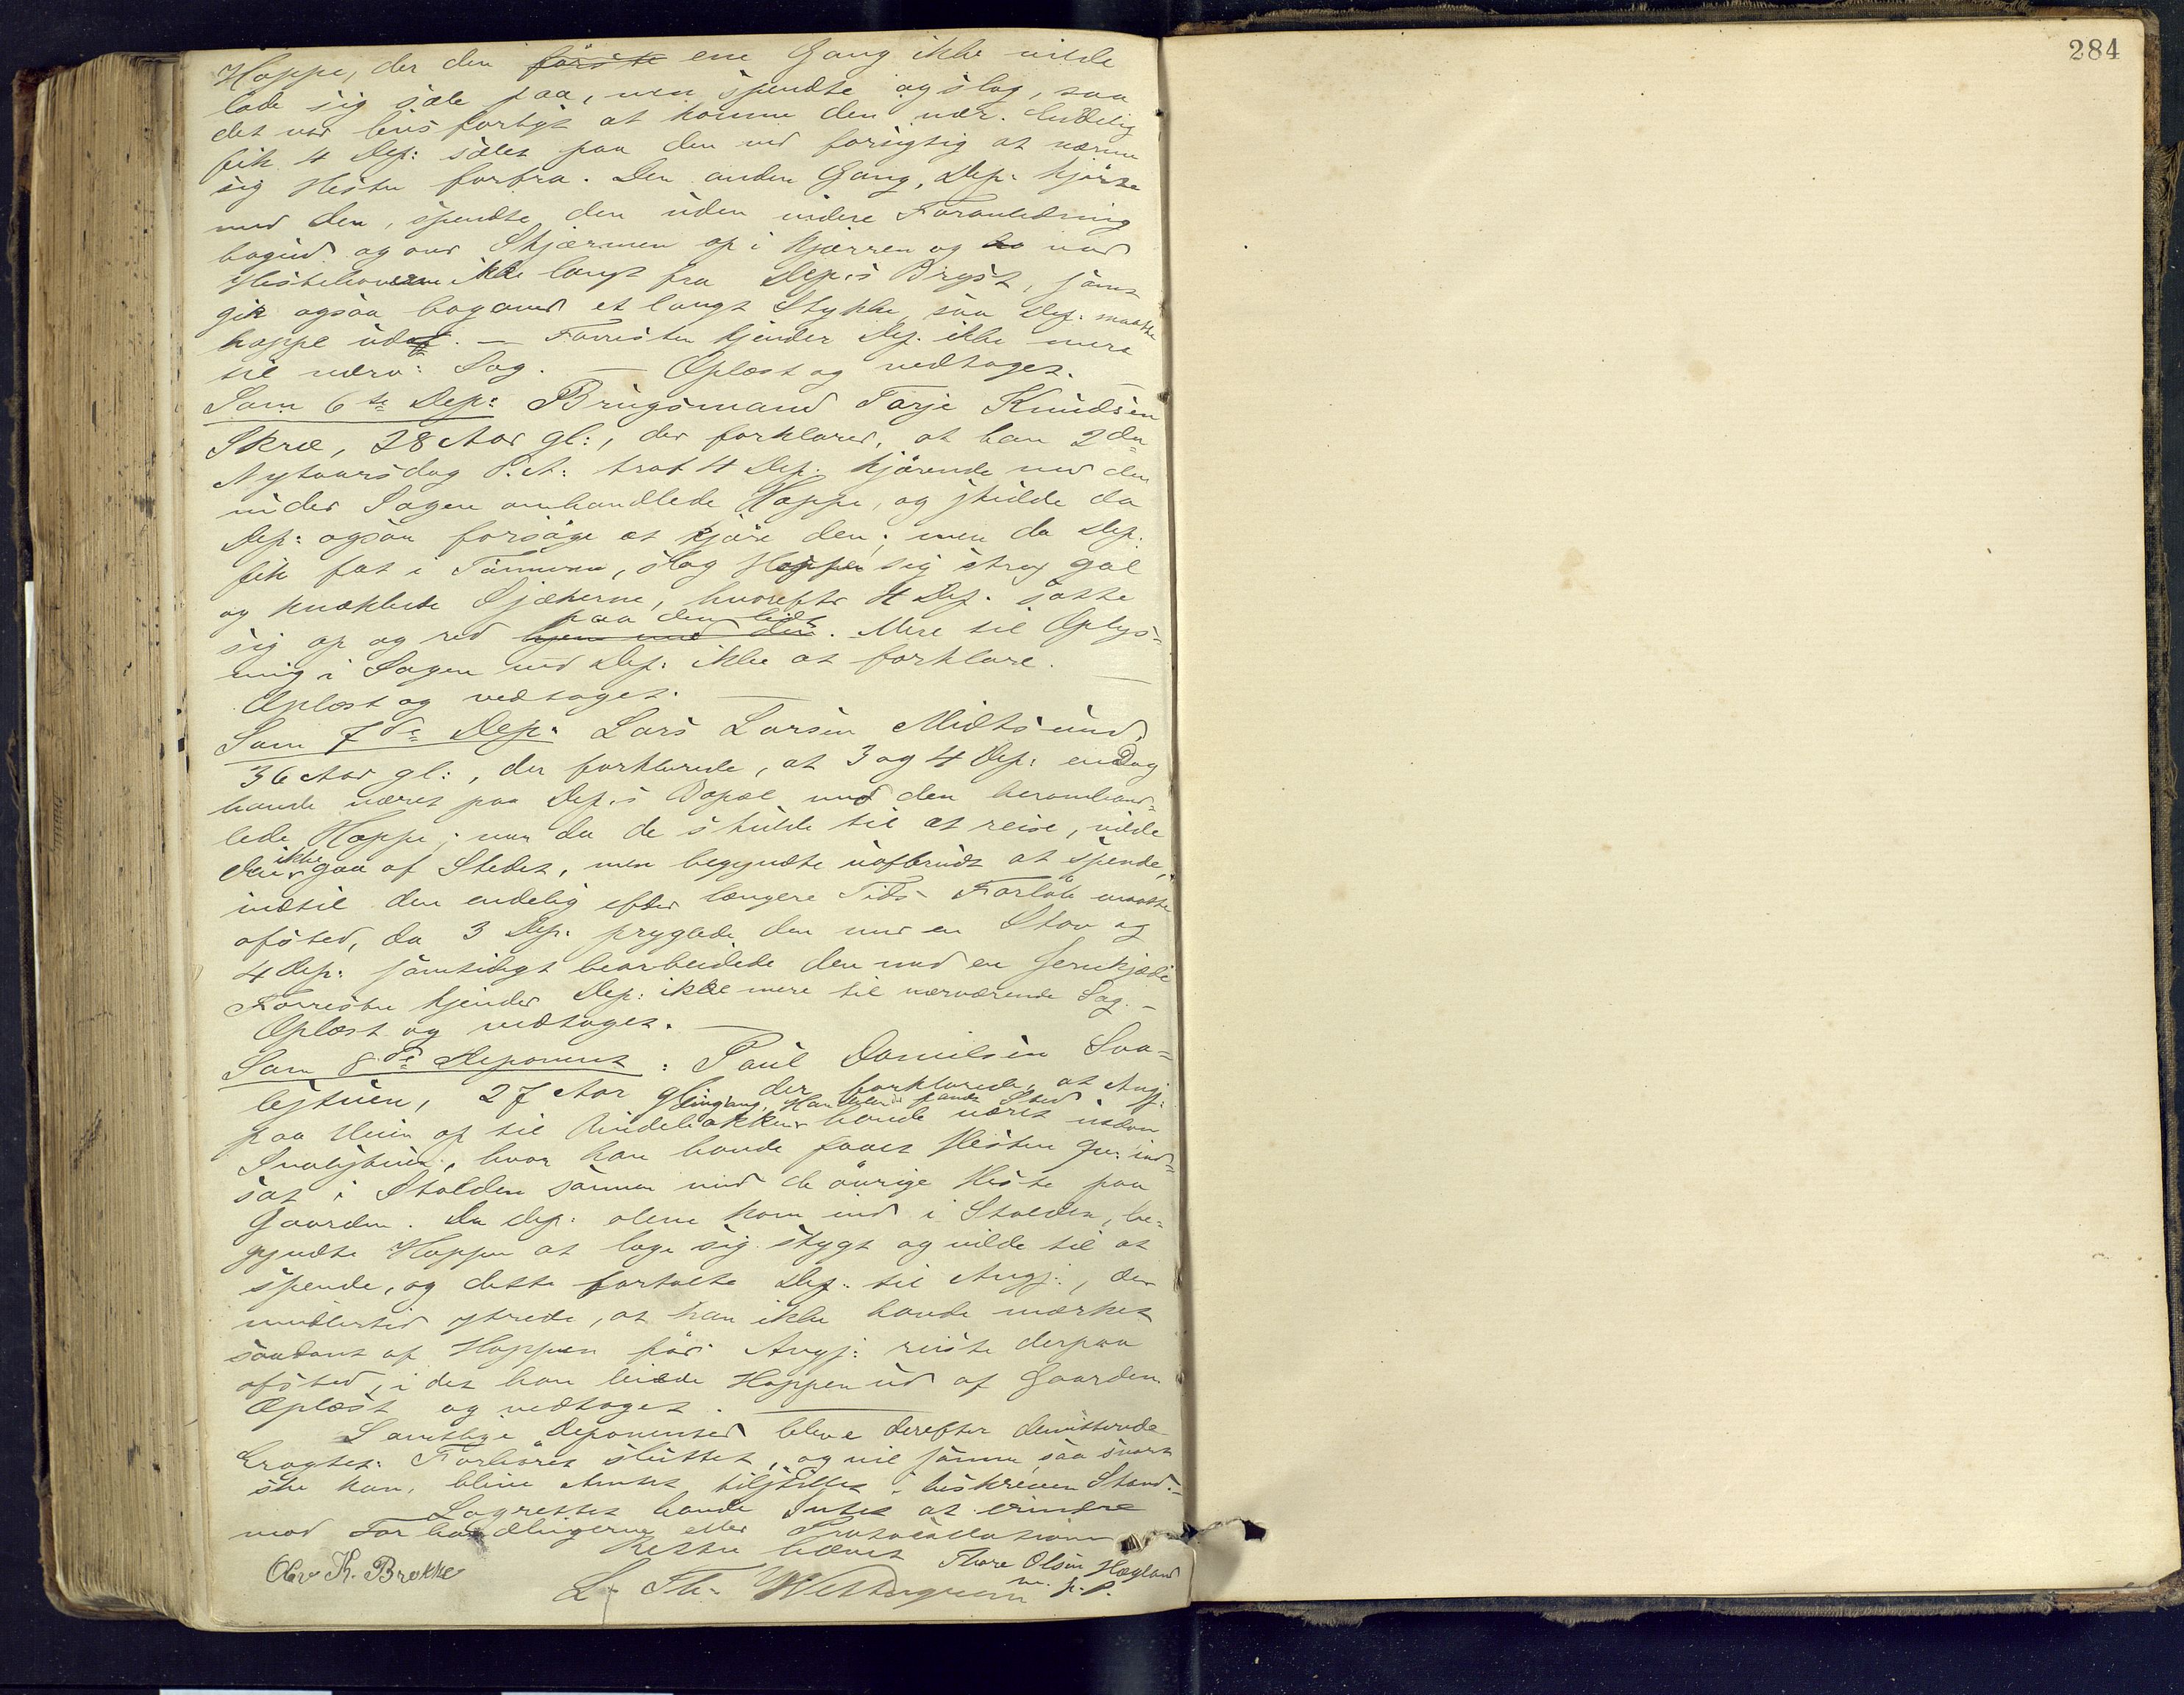 Hoppe, der den første ene Gang ikke vilde
lade sig sæle paa, men spendte og slog, saa
det var livsfarligt at komme den nær. Endelig
fik 4 Dep: sælet paa den ved forsigtig at nærme
sig Hesten forfra. Den anden Gang, Dep: kjørte
med den, spendte den uden videre Foranledning
bagud og over Skjærmen op i Kjærren og var
Hestehoverne ikke langt fra Dep:s Bryst, samt
gik ogsaa bagover et langt Stykke, saa Dep: maatte
hoppe udaf. — Forresten kjender Dep. ikke mere
til nærv: Sag. — Oplæst og vedtaget. —
Som 6te Dep: Brugsmand Tarje Knudsen
Skræ, 28 Aar gl:, der forklarer, at han 2den
Nytaarsdag d. A: traf 4 Dep. kjørende med den
under Sagen omhandlede Hoppe, og skulde da
Dep: ogsaa forsøge at kjøre den; men da Dep.
fik fat i Tømmene, slog Hoppen sig strax gal
og knækkede Skjækerne, hvorefter 4 Dep. satte
paa den lidt
sig op og red hjem med den. Mere til Oplys-
ning i Sagen ved Dep: ikke at forklare. —
Oplæst og vedtaget. —
Som 7de Dep: Lars Larsen Midtsund,
36 Aar gl:, der forklarede, at 3 og 4 Dep: en Dag
havde været paa Dep:s Bopæl med den heromhand-
lede Hoppe; men da de skulde til at reise, vilde
den ikke gaa af Stedet, men begyndte uafbrudt at spende,
indtil den endelig efter længere Tids Forløb maatte
afsted, da 3 Dep. pryglede den med en Stav og
4 Dep: samtidigt bearbeidede den med en Jernkjæde
Forresten kjender Dep: ikke mere til nærværende Sag. —
Oplæst og vedtaget. —
Som 8de Deponent: Paul Danielsen Sva-
lestuen, 27 Aar gl: der forklarede, at Angj:
engang, Handelen fandt Sted
paa Veien op til havde været indom
Svalestuen, hvor han havde faaet Hesten ind-
sat i Stalden sammen med de øvrige Heste paa
Gaarden. Da Dep: alene kom ind i Stalden, be-
gyndte Hoppen at lage sig stygt og vilde til at
spende, og dette fortalte Dep: til Angj:, der
imidlertid ytrede, at han ikke havde mærket
saadant af Hoppen før. Angj: reiste derpaa
afsted, i det han leiede Hoppen ud af Gaarden.
Oplæst og vedtaget. —
Samtlige Deponenter bleve derefter demitterede
Eragtet: Forhøret sluttet, og vil samme, saa snart
ske kan, blive Amtet tilstillet i beskreven Stand. —
Lagrettet havde Intet at erindre
mod Forhandlingerne eller Protocollationen
Retten hævet
Olav K. Brokke
Thore Olsen Hægland
m. p. P.
L. Th. Westergreen
284